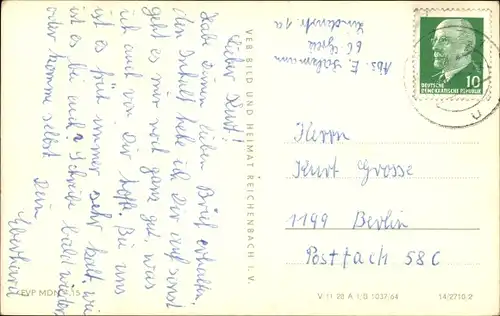 Abs. E.
66 Greiz
Lindenstr. 1a
Lieber Kurt!
Habe Deinen lieben Brief erhalten.
den Inhalt hebe ich Dir auf sonst
geht es mir noch ganz gut, was
ich auch von Dir hoffe. Bei uns
ist es früh immer sehr kalt, wie
ist es bei euch? Schreibe bald wieder
oder komme selbst
Dein
Eberhard
VEB BILD UND HEIMAT REICHENBACH I. V.
DEUTSCHE
DEMOKRATISCHE REPUBLIK
10
Herrn
Kurt Grosse
1199 Berlin
Postfach 58C
EVP MDN 0,15
V 11 28 A 1/B 1037/64
14/2710-2